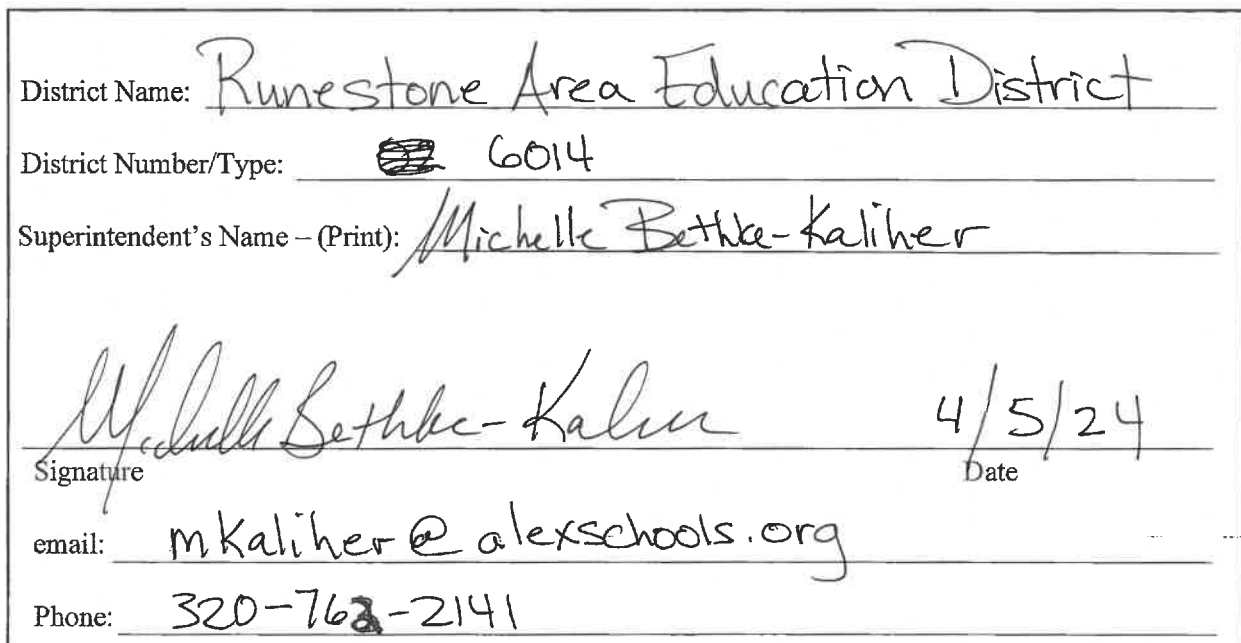 District Name: Runestone Area Education District
District Number/Type: 6014
Superintendent's Name – (Print): Michelle Bethke-Kaliher
Michelle Bethke-Kaliher 4/5/24
Signature Date
email: mkaliher@alexschools.org
Phone: 320-762-2141